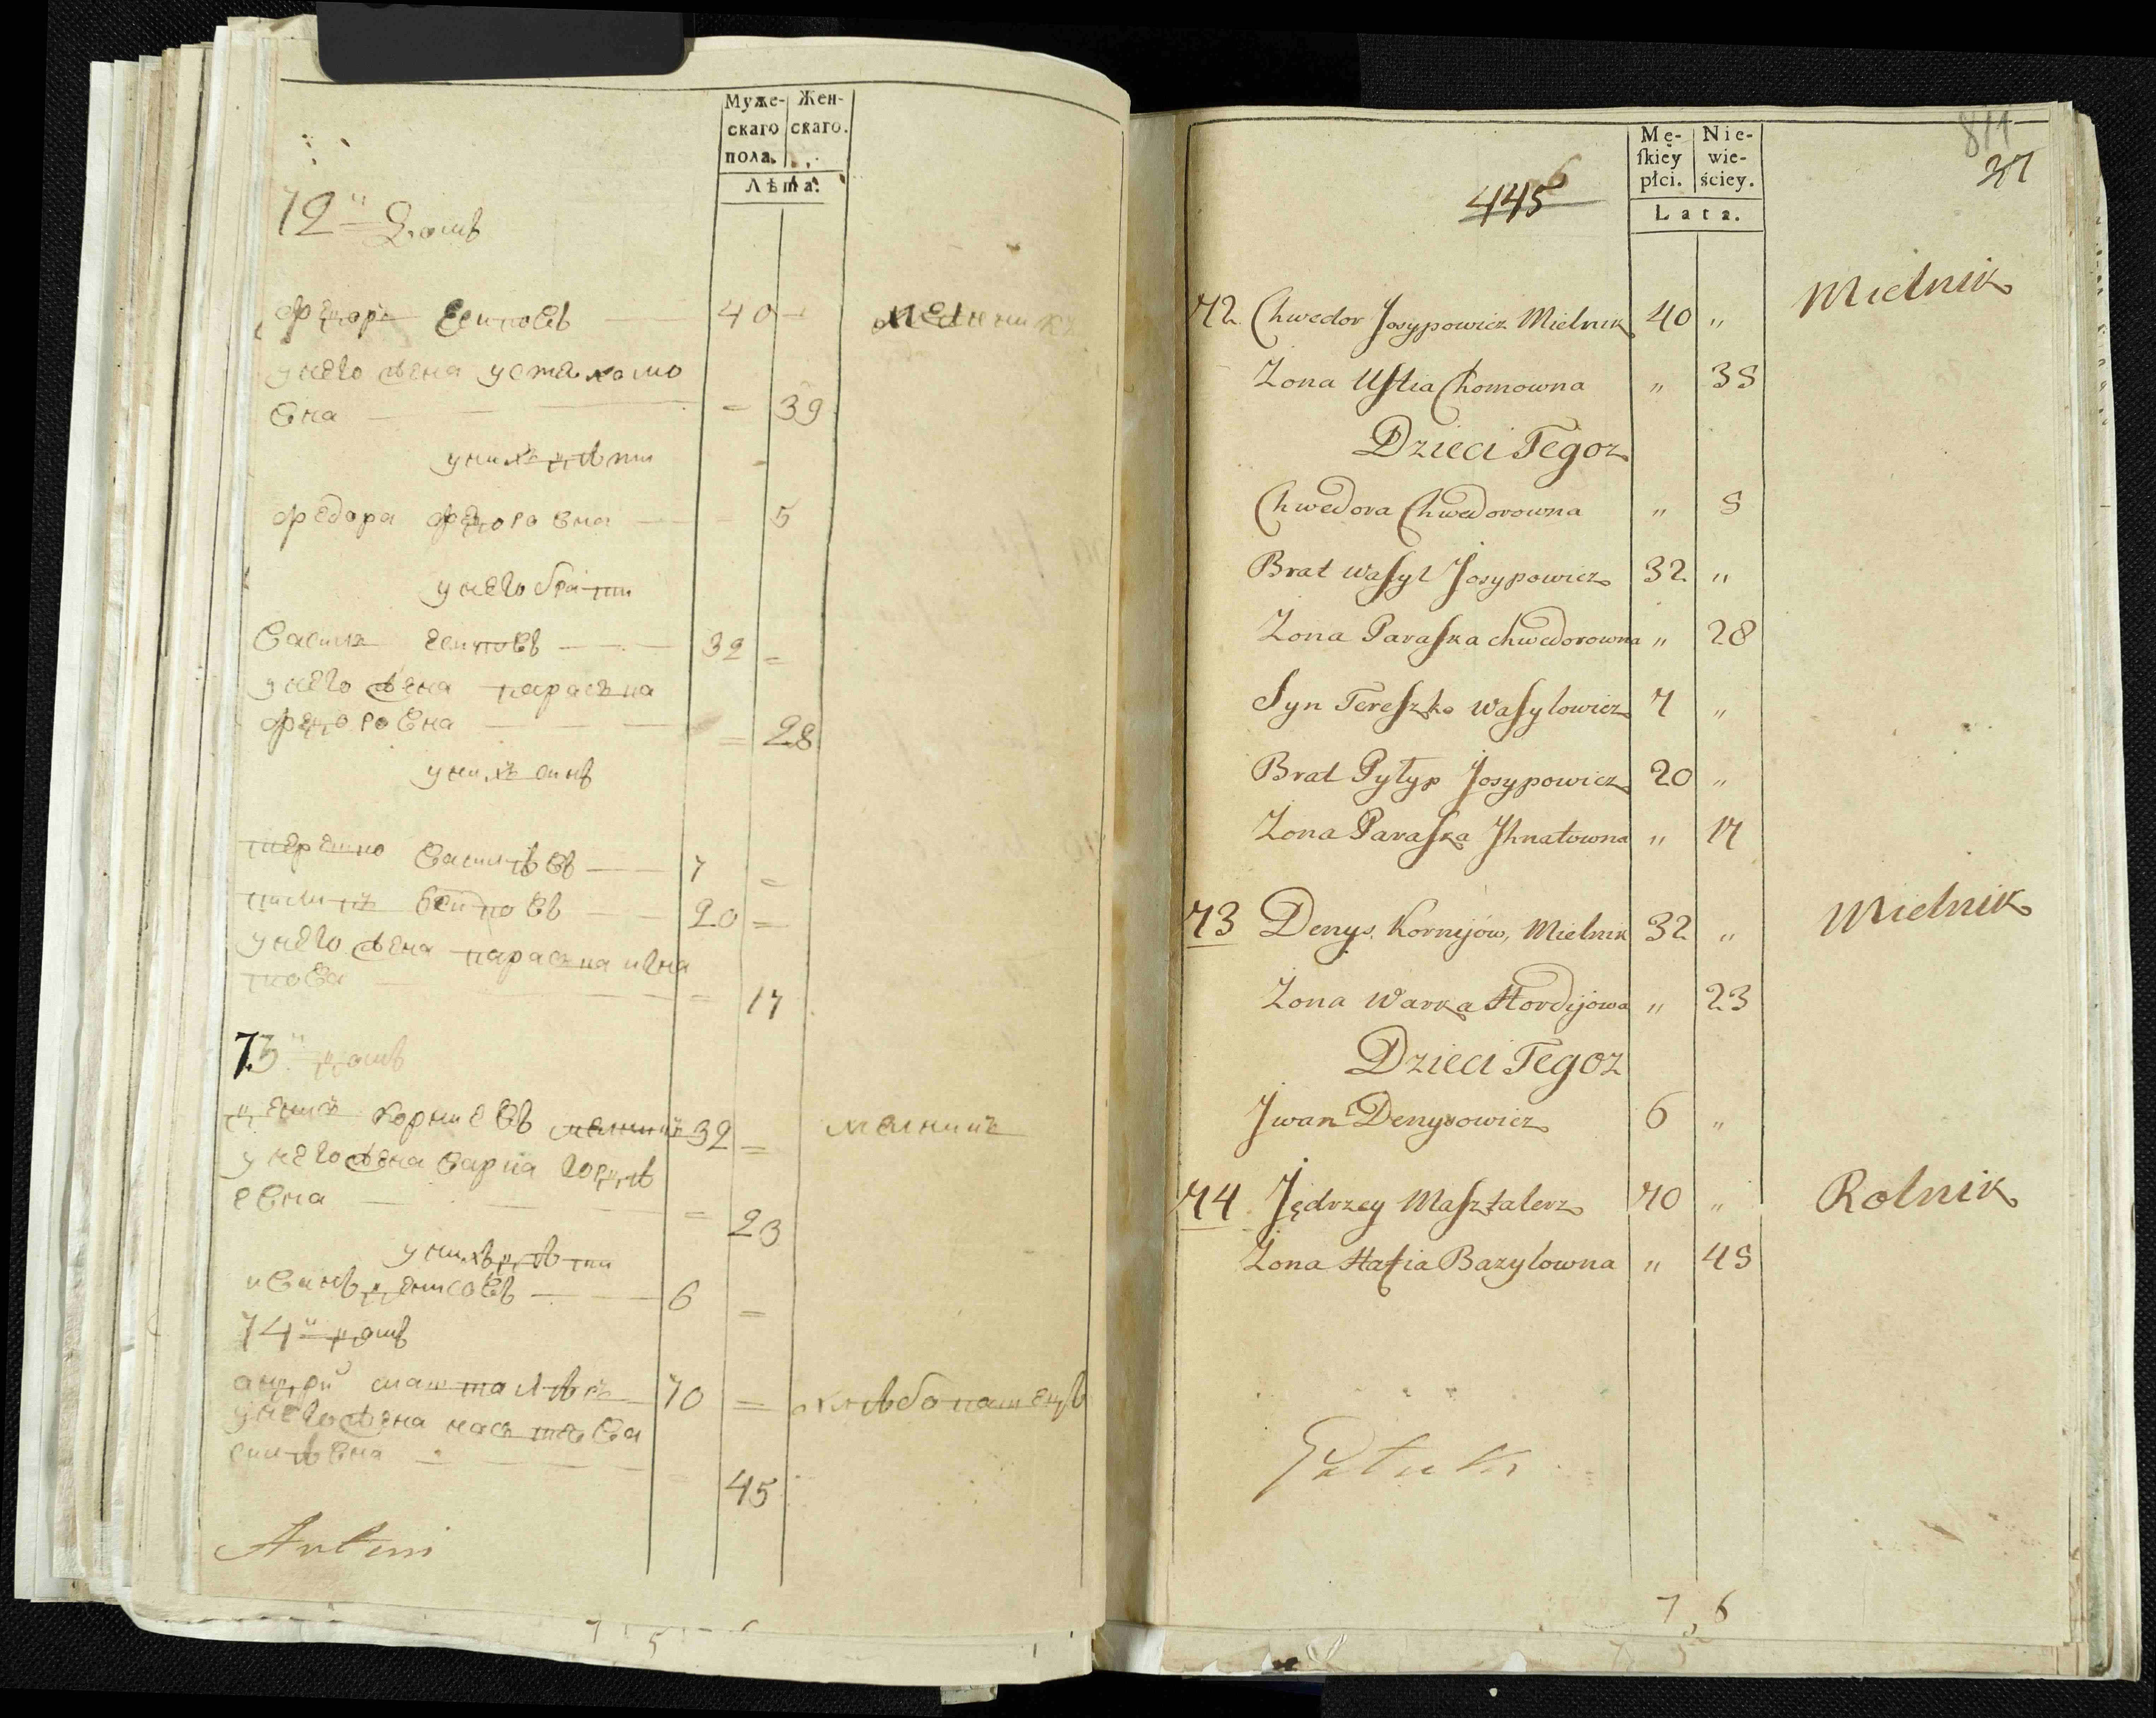 Муже-
скаго
пола.
Жен-
скаго.
Лѣта.
72й домъ
федоръ есиповъ 40 = мелникъ
у него жена устя хомо
вна = 39
у нихъ дѣти
федора федоровна = 5
у него братя
василь есиповъ 32 =
у него жена параска
федоровна = 28
у нихъ синъ
терешко василѣвъ 7 =
пилипъ есиповъ 20 =
у него жена параска игна
това = 17
73й домъ
денисъ корниевъ мелникъ 32 = мелникъ
у него жена варка гордѣ
евна = 23
у нихъ дѣти
иванъ денисовъ 6 =
74й домъ
андрей машталѣръ 70 = хлѣбопашецъ
у него жена настя ва
силѣвна = 45
Antoni
Mę-
ſkiey
płci.
Nie-
wie-
ściey.
Lata.
811
37
445
6
72. Chwedor Josypowicz Mielnik 40 " Mielnik
Zona Uſtia Chomowna " 35
Dzieci Tegoz
Chwedora Chwedorowna " 5
Brat Waſyl Josypowicz 32 "
Zona Paraſka Chwedorowna " 28
Syn Tereſzko Waſylowicz 7 "
Brat Pyłyp Josypowicz 20 "
Zona Paraſka Jhnatowna " 17
73 Denys Kornijów, Mielnik 32 " Mielnik
Zona Warka Hordijowa " 23
Dzieci Tegoz
Jwan Denysowicz 6 "
74 Jędrzey Maſztalerz 70 " Rolnik
Zona Naſtia Bazylowna " 45
7, 6